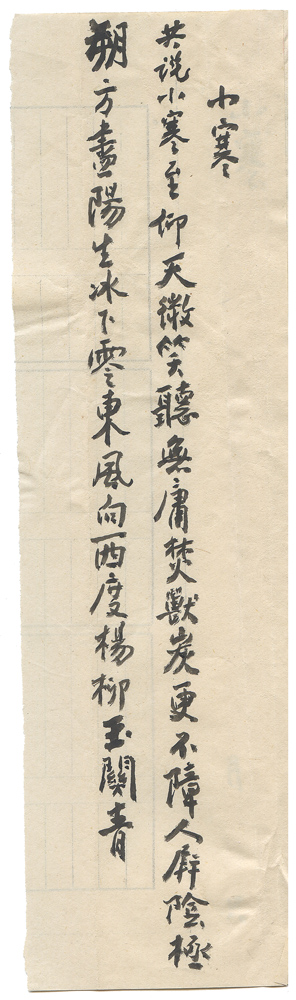 小寒
共说小寒至仰天微笑聽無庸焚獸炭更不障人屏陰極
朔方盡陽生冰下零東風向西度楊柳玉關青